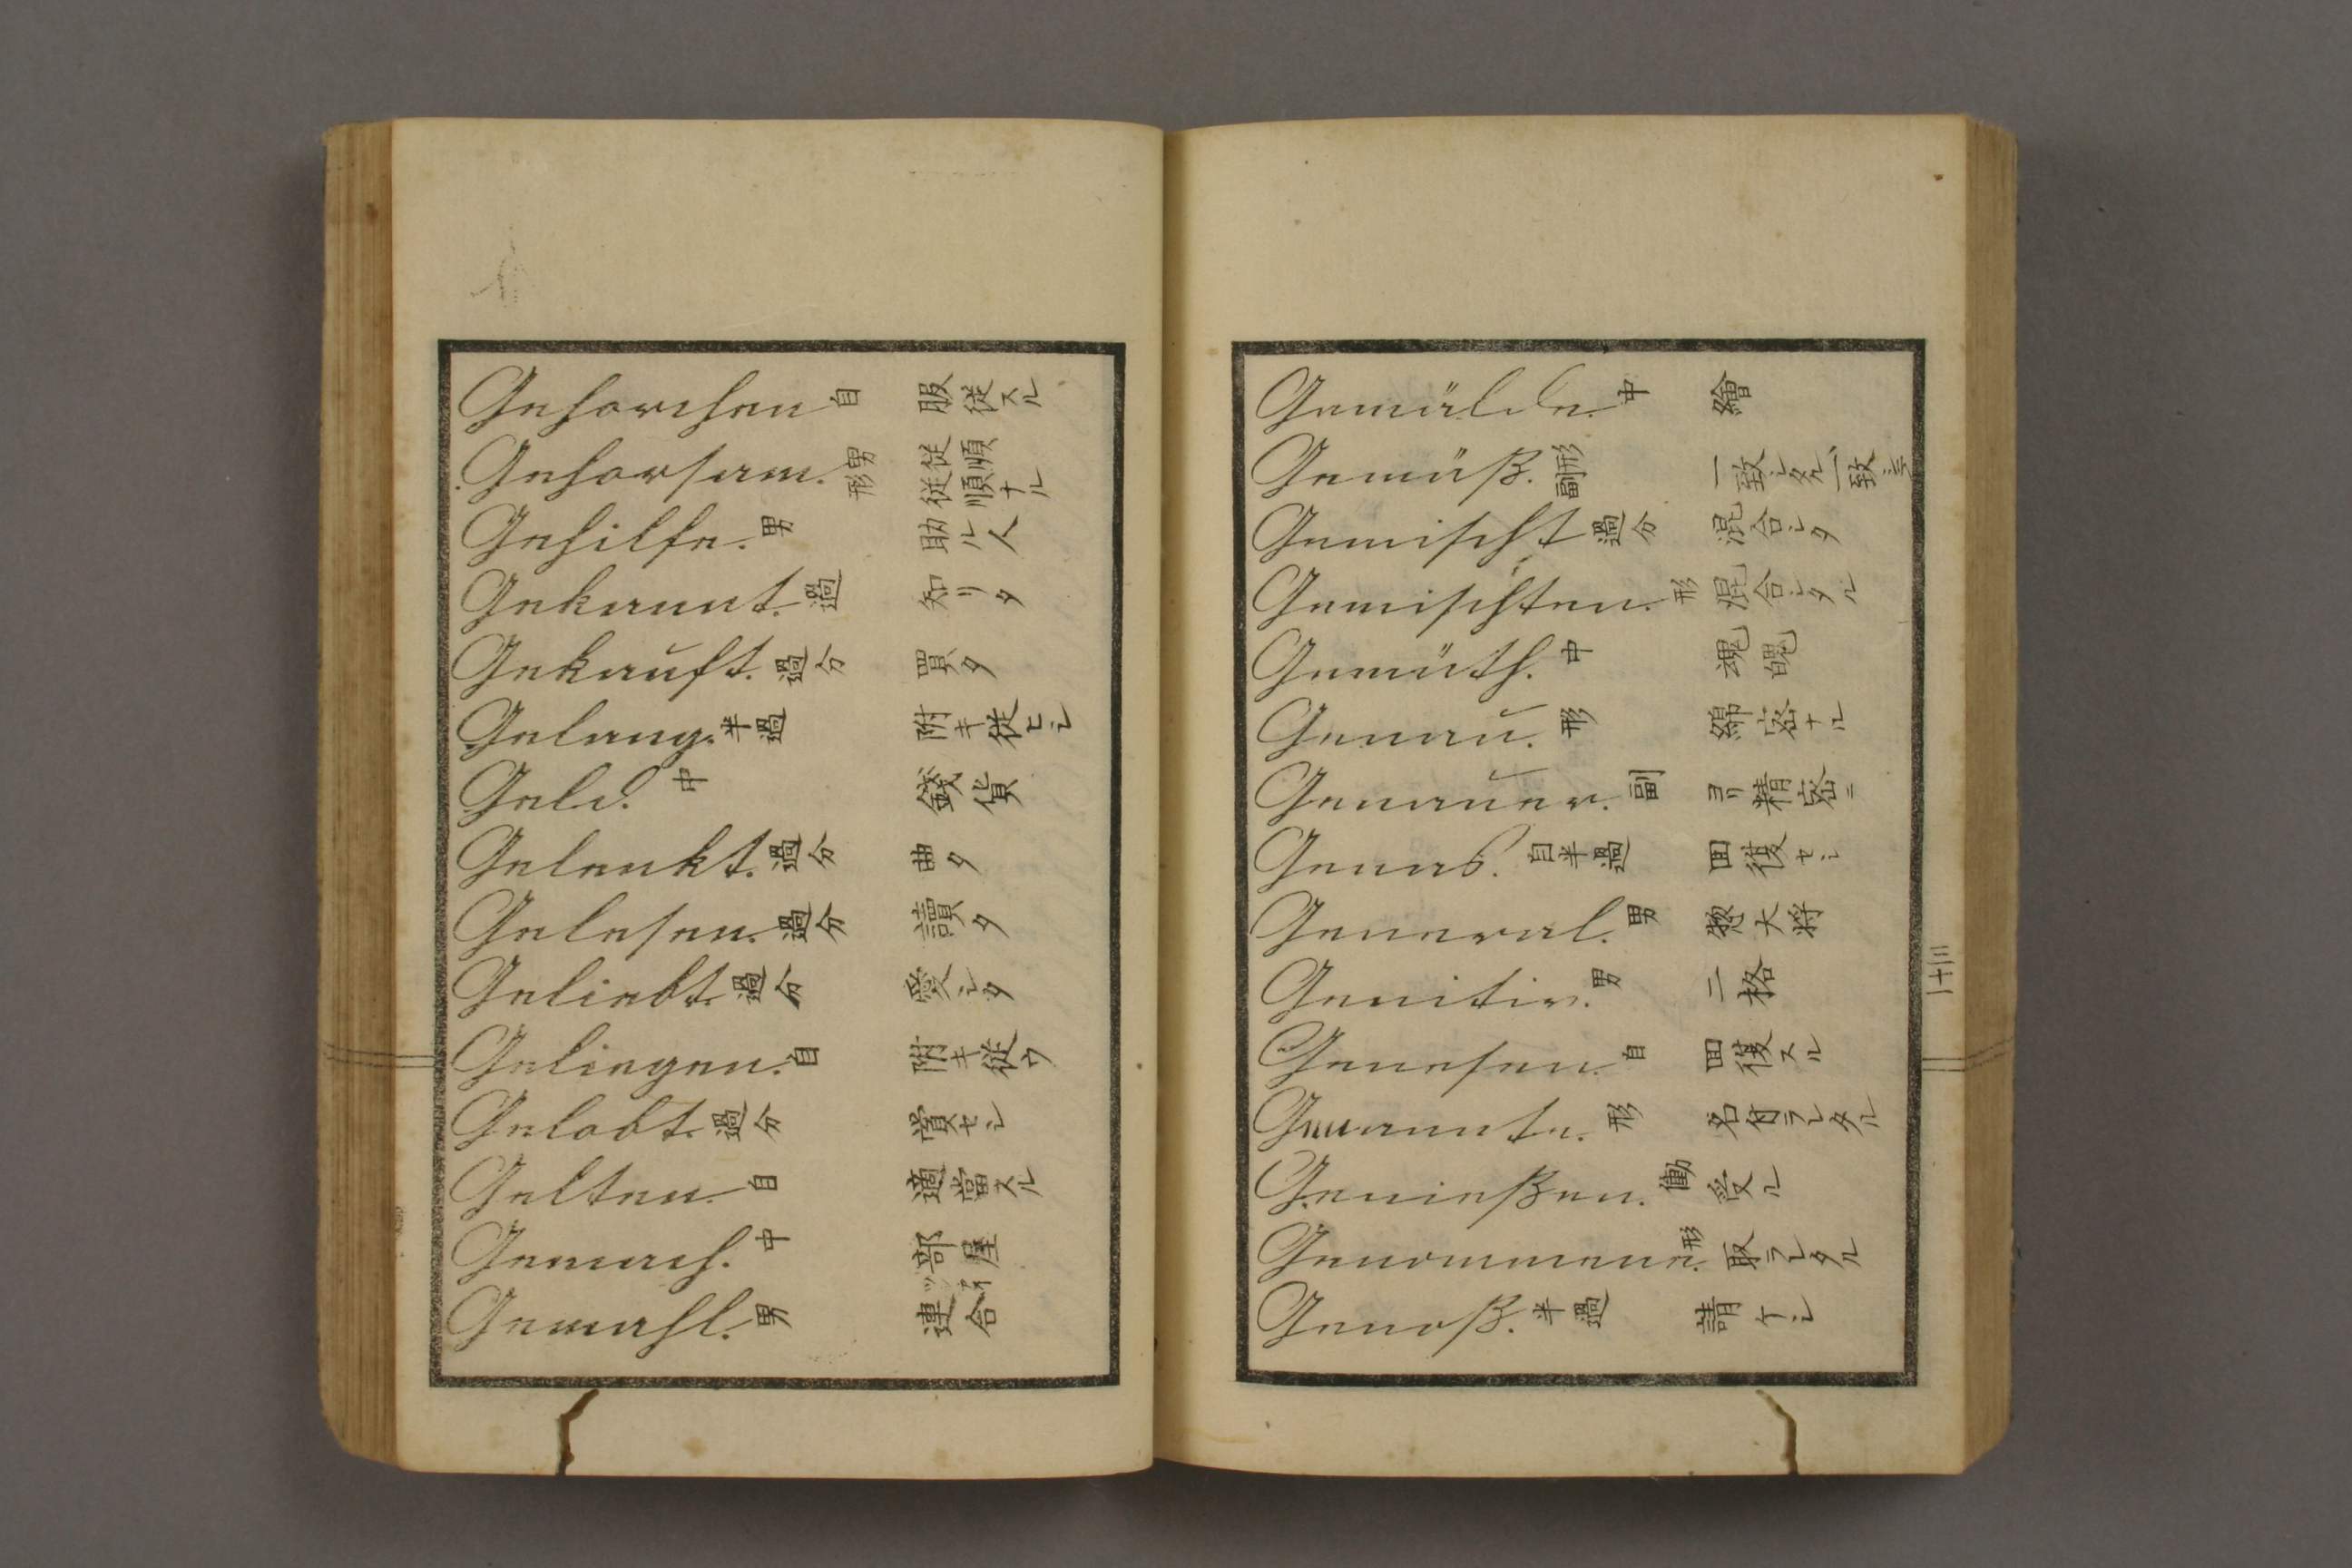 Gehorchen 自 服従スル
Gehorsam. 男形 従順 従順ナル
Gehilfe. 男 助ル人
Gekannt. 過 知リタ
Gekauft. 過分 買タ
Gelang. 半過 附キ従ヒシ
Geld. 中 錢貨
Gelenkt. 過分 曲タ
Gelesen. 過分 讀タ
Geliebt. 過分 愛シタ
Geliegen. 自 附キ従ウ
Gelobt. 過分 賞セシ
Gelten. 自 適當スル
Gemach. 中 部屋
Gemahl. 男 連合
Gemälde. 中 繪
Gemäß. 形副 一致シタル 一致シテ
Gemischt 過分 混合シタ
Gemischten. 形 混合シタル
Gemüth. 中 魂魄
Genau. 形 綿密ナル
Genauer. 副 ヨリ精密ニ
Genas. 自半過 回復セシ
General. 男 惣大将
Genitiv. 男 二格
Genesen. 自 回復スル
Genannte. 形 名付ラレタル
Genießen. 働 受ル
Genommene. 形 取ラレタル
Genoß. 半過 請ケシ
十三